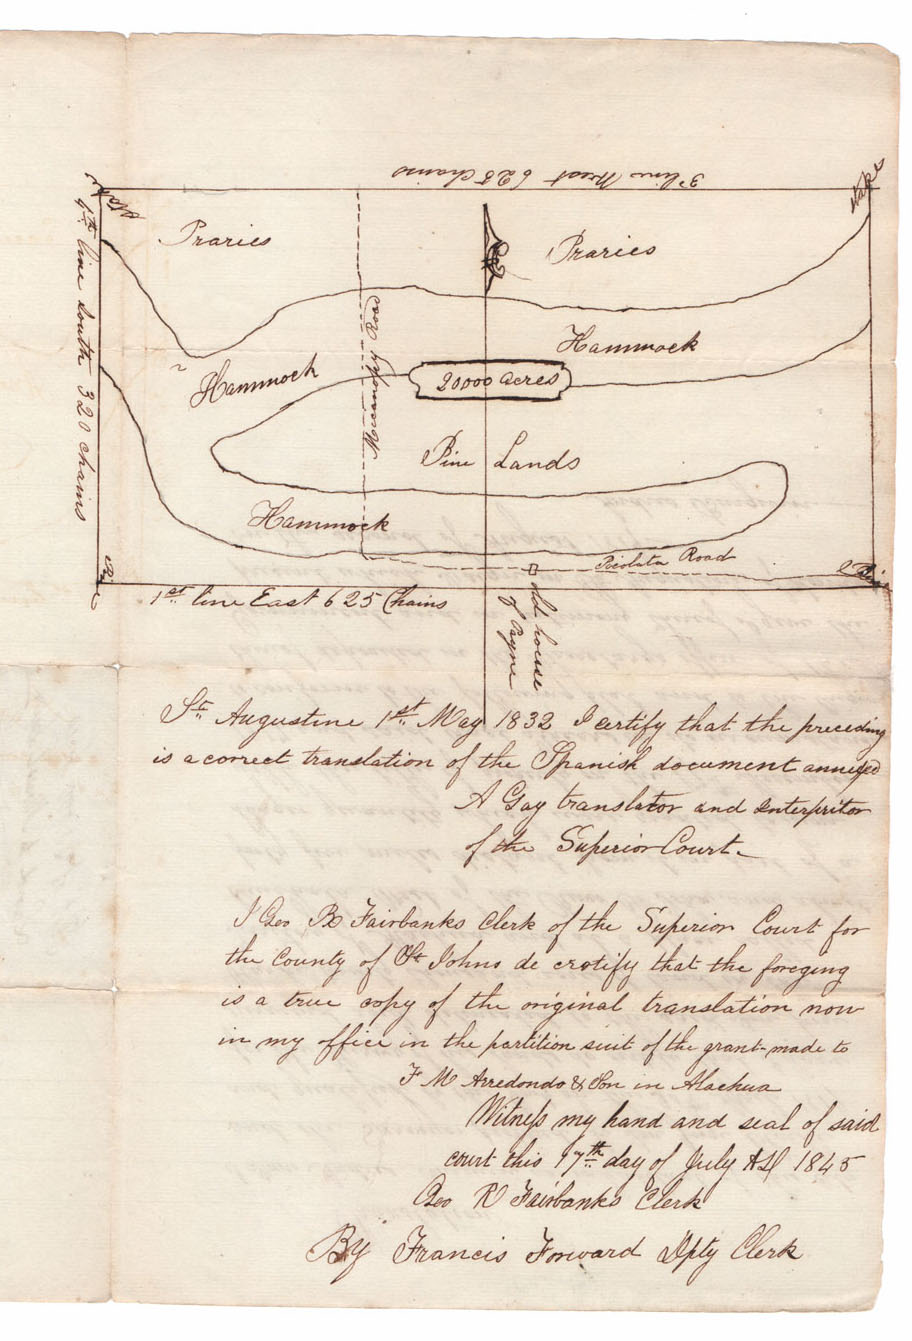 3d line West 625 chains
Stakes
Praries
Praries
4th line South 320 chains
Hammock
Hammock
Micanopy Road
20000 acres
Pine Lands
Hammock
Picolata Road
Pine
1st. line East 625 Chains
old house
of Payne
St. Augustine 1st. May 1832 I certify that the preceding
is a correct translation of the Spanish document annexed
A Gay translator and Interpritor
of the Superior Court
I Geo R Fairbanks Clerk of the Superior Court for
the County of St Johns do crotify that the foreging
is a true copy of the original translation now
in my office in the partition suit of the grant made to
F M Arredondo & Son in Alachua
Witness my hand and seal of said
court this 17th. day of July AD 1845
Geo R Fairbanks Clerk
By Francis Forward Dpty Clerk